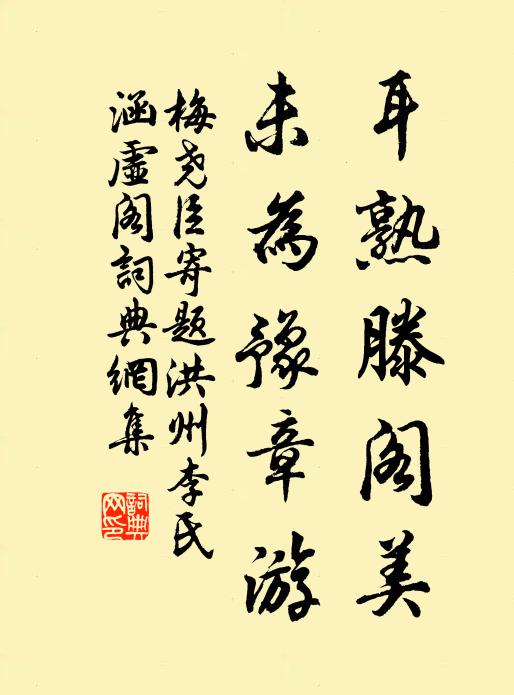 耳熟滕阁美
未為豫章游
梅尧臣寄题洪州李氏
涵虚阁詞典網集
詞典網印